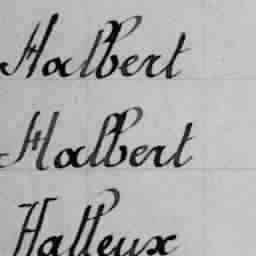 Halbert
Halbert
Halleux